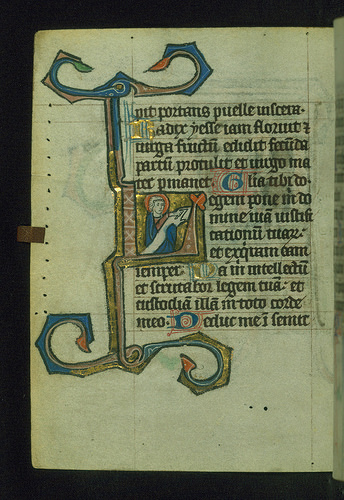 pit portans puelle viscera.
Radix yesse iam floruit ⁊
virga fructū edidit fecūda
partū protulit et virgo ma
ter pmanet. Glia tibi do.
Legem pone m̄ do
mine viā iustifi
cationū tuar.
et exquiram eam
semper. Da m̄ intellectū
et scrutabor legem tuā. et
custodiā illā in toto corde
meo. Deduc me ī semit